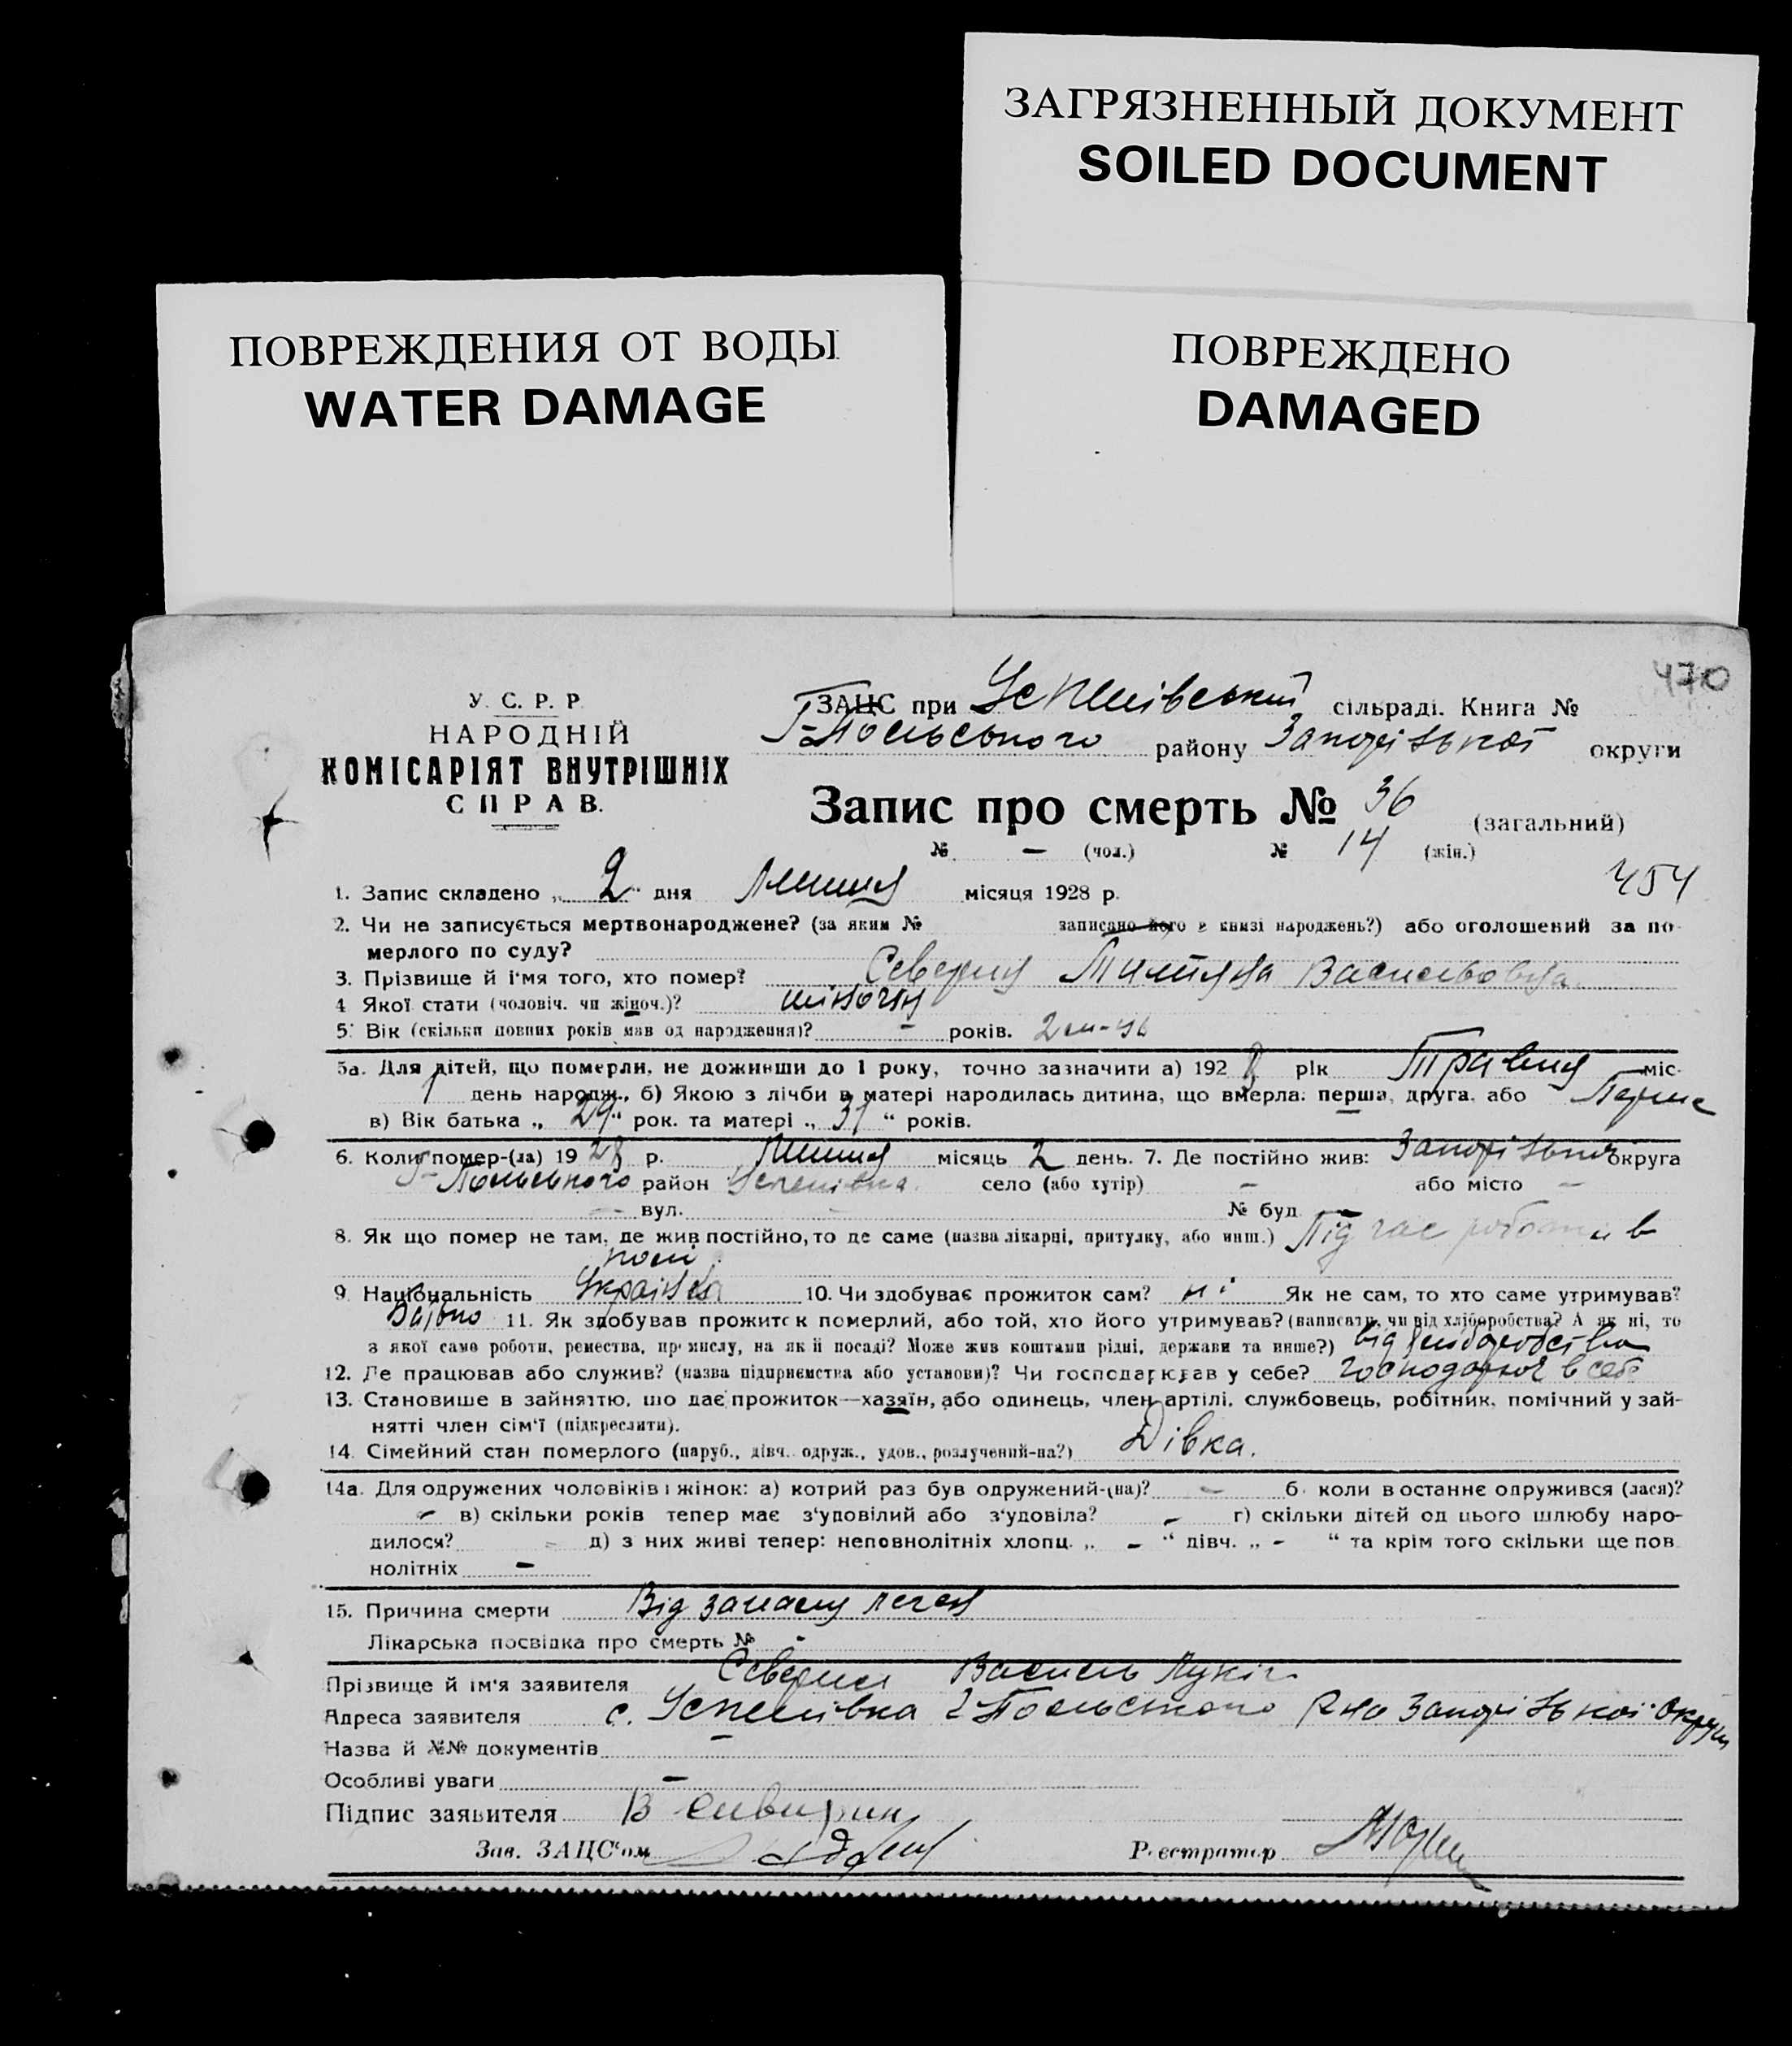 ЗАГРЯЗНЕННЫЙ ДОКУМЕНТ
SOILED DOCUMENT
ПОВРЕЖДЕНИЯ ОТ ВОДЫ
WATER DAMAGE
ПОВРЕЖДЕНО
DAMAGED
470
У. С. Р. Р.
НАРОДНІЙ
КОМІСАРІЯТ ВНУТРІШНІХ
СПРАВ.
ЗАЦС при Успенівський сільраді. Книга №
Г-Польського району Запорізької округи
Запис про смерть № 36 (загальний)
№ — (чол.) № 14 (жін.)
454
1. Запис складено „ 2 " дня Липня місяця 1928 р.
2. Чи не записується мертвонароджене? (за яким № записано його в книзі народжень?) або оголошений за по-
мерлого по суду?
3. Прізвище й ім'я того, хто помер? Северин Васильовна
4 Якої стати (чоловіч. чи жіноч.)? жіноча
5. Вік (скільки повних років мав од народження)? - років.
5а. Для дітей, що померли, не доживши до 1 року, точно зазначити а) 1928 рік Травня міс.
1 день народж., б) Якою з лічби в матері народилась дитина, що вмерла: перша, друга, або Перше
в) Вік батька „ 29 " рок. та матері „ 31 " років.
6. Коли помер-(ла) 1928 р. Липня місяць 2 день. 7. Де постійно жив: Запорізької округа
Г-Польського район Успенівка село (або хутір) - або місто -
- вул. - № буд. -
8. Як що помер не там, де жив постійно, то де саме (назва лікарні, притулку, або инш.) Під час роботи в
полі
9. Національність Українка 10. Чи здобуває прожиток сам? ні Як не сам, то хто саме утримував?
Батько 11. Як здобував прожиток померлий, або той, хто його утримував? (написати, чи від хліборобства? А як ні, то
з якої саме роботи, ремества, промислу, на якій посаді? Може жив коштами рідні, держави та инше?) від хліборобства
12. Де працював або служив? (назва підприємства або установи)? Чи господарював у себе? в себе
13. Становище в зайняттю, що дає прожиток—хазяїн, або одинець, член артілі, службовець, робітник, помічний у зай-
нятті член сім'ї (підкреслити).
14. Сімейний стан померлого (паруб., дівч. одруж., удов., розлучений-на?) Дівка.
14а. Для одружених чоловіків і жінок: а) котрий раз був одружений-(на)? - б. коли востаннє одружився (лася)?
- в) скільки років тепер має з'удовілий або з'удовіла? - г) скільки дітей од цього шлюбу наро-
дилося? - д) з них живі тепер: неповнолітніх хлопц. „ - " дівч. „ - " та крім того скільки ще пов.
нолітніх -
15. Причина смерти Від запалу легень
Лікарська посвідка про смерть № -
Прізвище й ім'я заявителя Северин Василь Лукіч
Адреса заявителя с. Успенівка Г Польського Р-на Запорізької Округи
Назва й №№ документів -
Особливі уваги -
Підпис заявителя В Сивирин
Зав. ЗАЦС'ом
Реєстратор